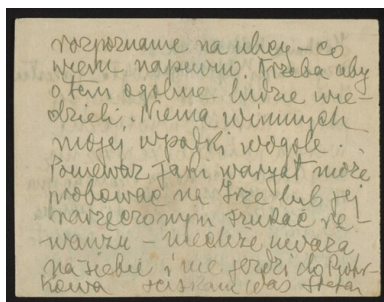 rozpoznanie na ulicy – co
wiem napewno. Trzeba aby
o tem ogólnie ludzie wie-
dzieli. Niema winnych
mojej wpadki wogóle.
Ponieważ jakiś warjat może
próbować na Irze lub jej
narzeczonym szukać re-
wanżu – niechże uważa
na siebie i nie jeździ do Piotr-
kowa ściskam Was Stefan